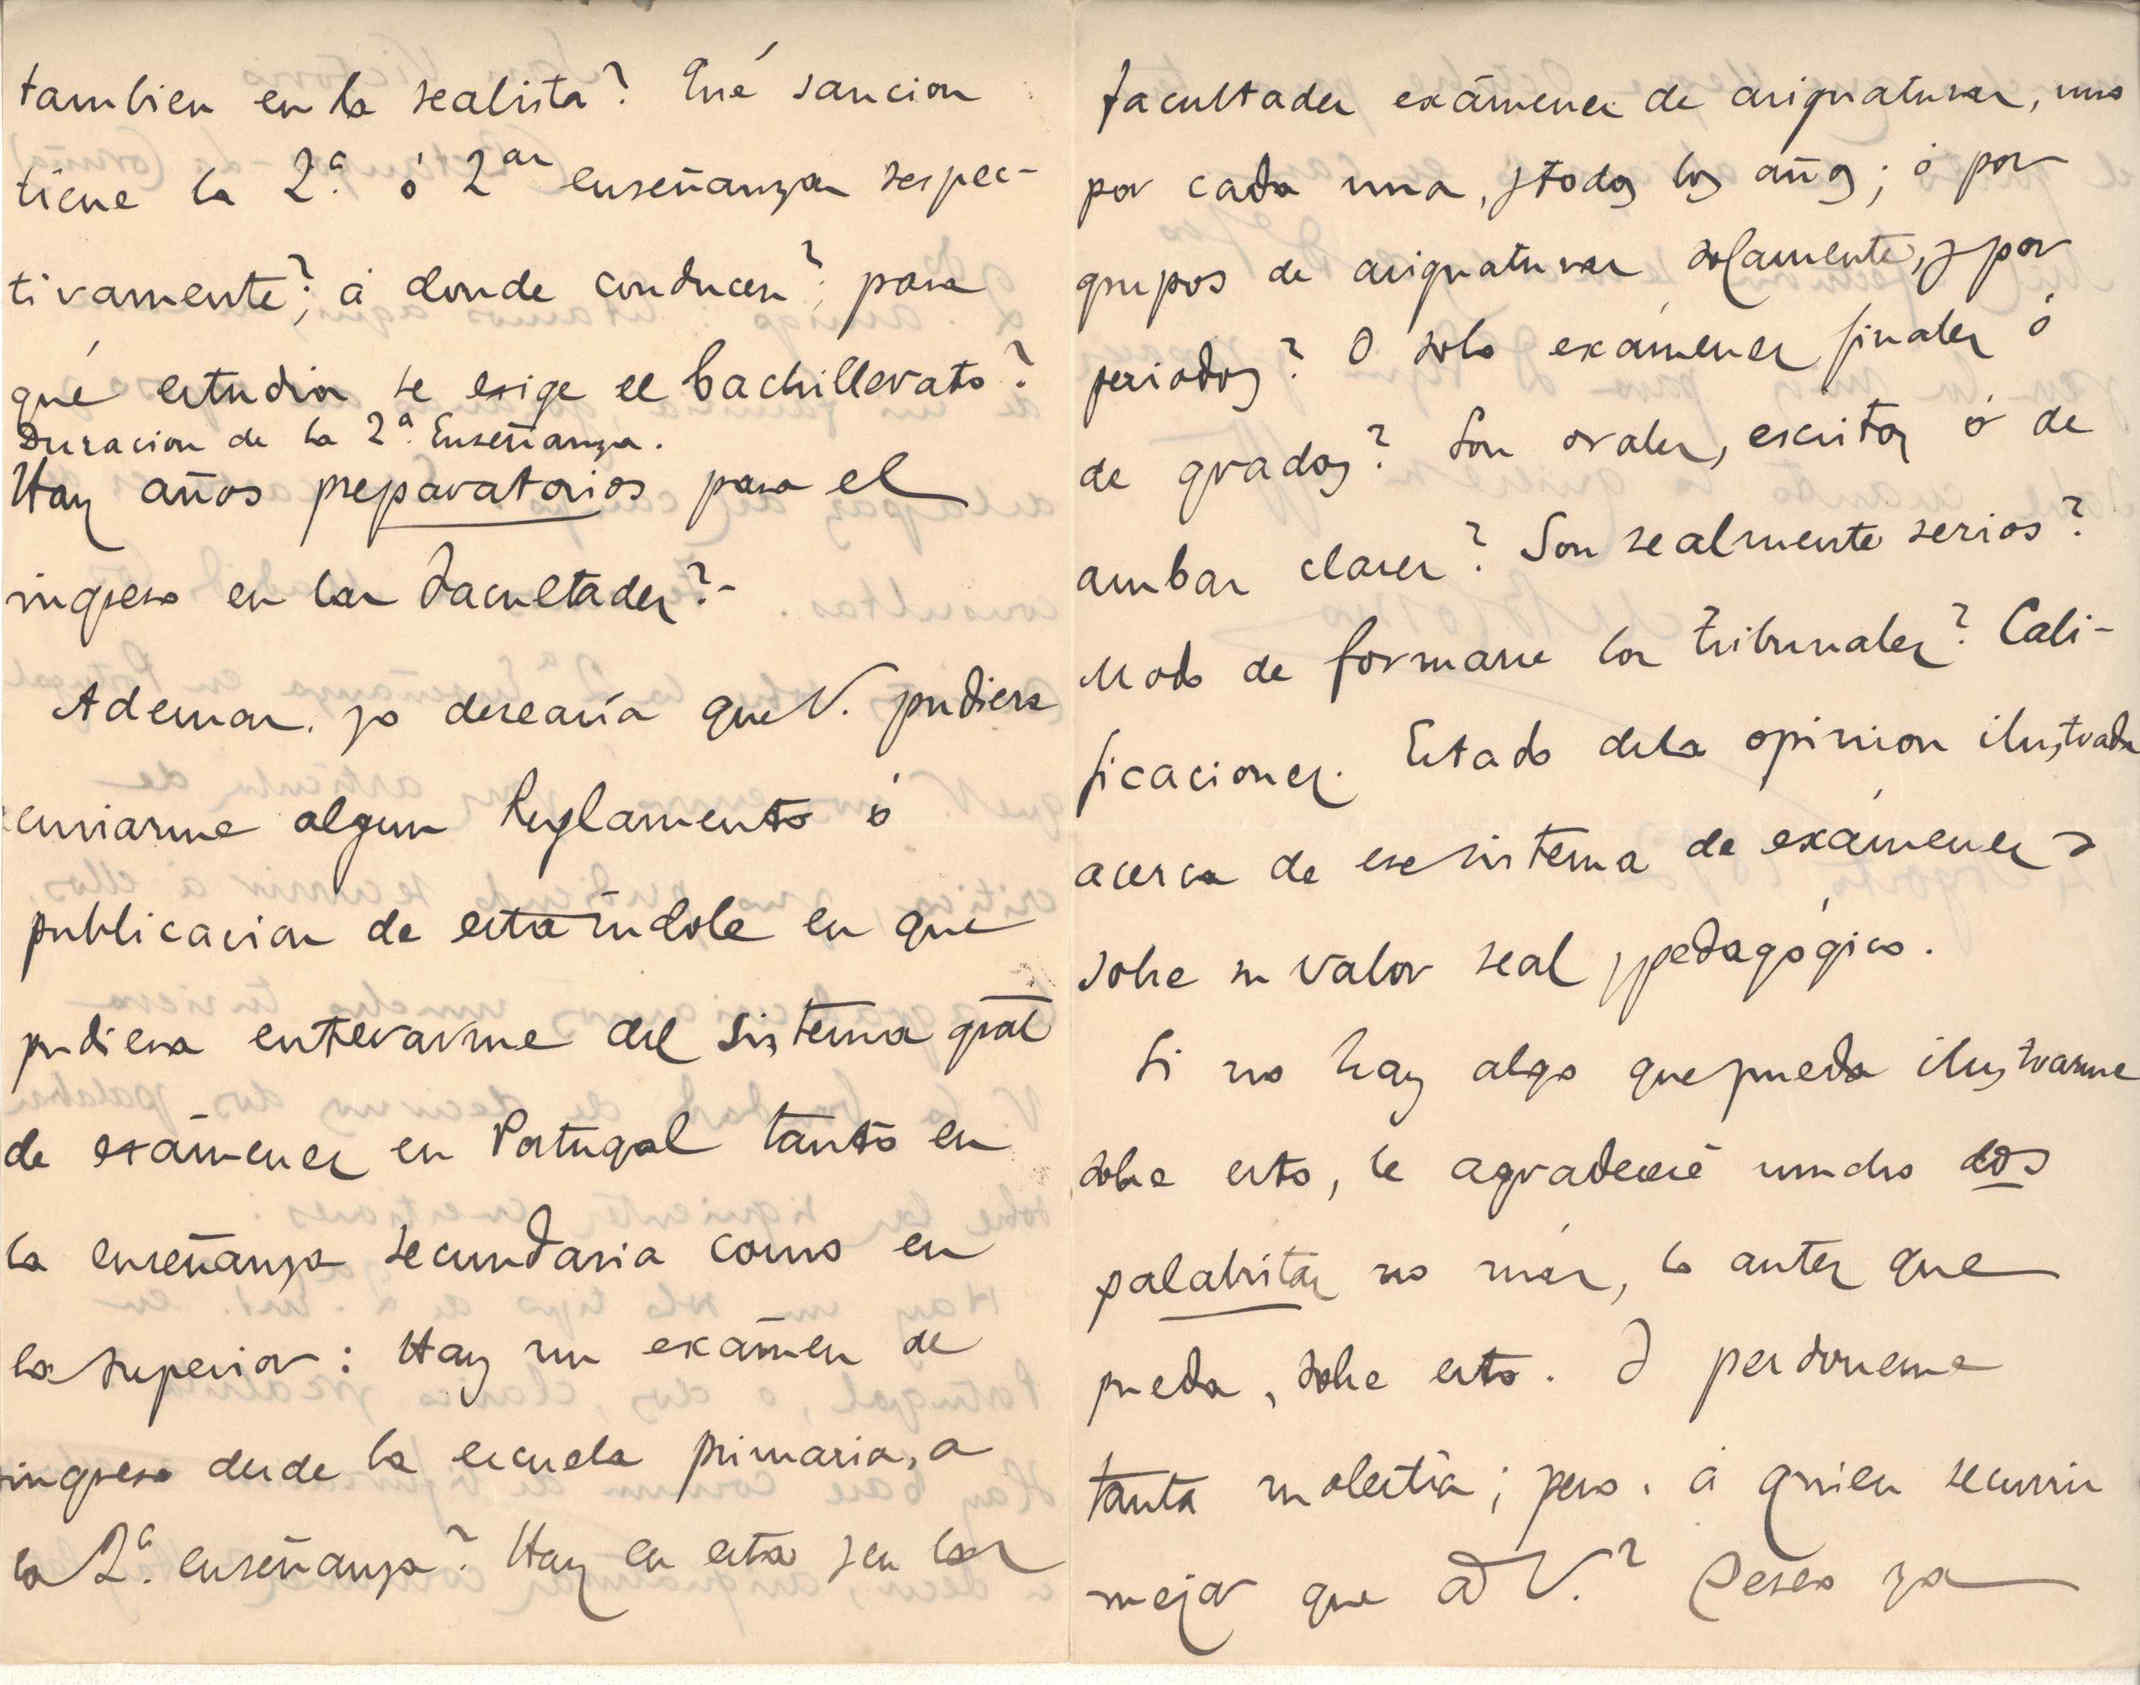 tambien en la realista? Qué sancion
tiene la 2.ª ó 2.as enseñanzas respec-
tivamente?; á donde conducen?; para
qué estudios se exige el bachillerato?
Duracion de la 2ª. Enseñanza.
Hay años preparatorios para el
ingreso en las Facultades?-
Ademas, yo desearía que V. pudiera
enviarme algun Reglamento ó
publicacion de esta índole en que
pudiera enterarme del sistema gral
de exámenes en Portugal tanto en
la enseñanza secundaria como en
la superior: Hay un exámen de
ingreso desde la escuela primaria, a
la 2.ª enseñanza? Hay en esta y en las
Facultades exámenes de asignaturas, uno
por cada una, y todos los años; ó por
grupos de asignaturas solamente, y por
periodos? O solo exámenes finales ó
de grados? Son orales, escritos ó de
ambas clases? Son realmente serios?
Modo de formarse los tribunales? Cali-
ficaciones. Estado de la opinion ilustrada
acerca de ese sistema de exámenes y
sobre su valor real y pedagógico.
Si no hay algo que pueda ilustrarme
sobre esto, le agradeceré mucho dos
palabritas no más, lo antes que
pueda, sobre esto. Y perdoneme
tanta molestia; pero, á quien recurrir
mejor que á V.? Deseo ya